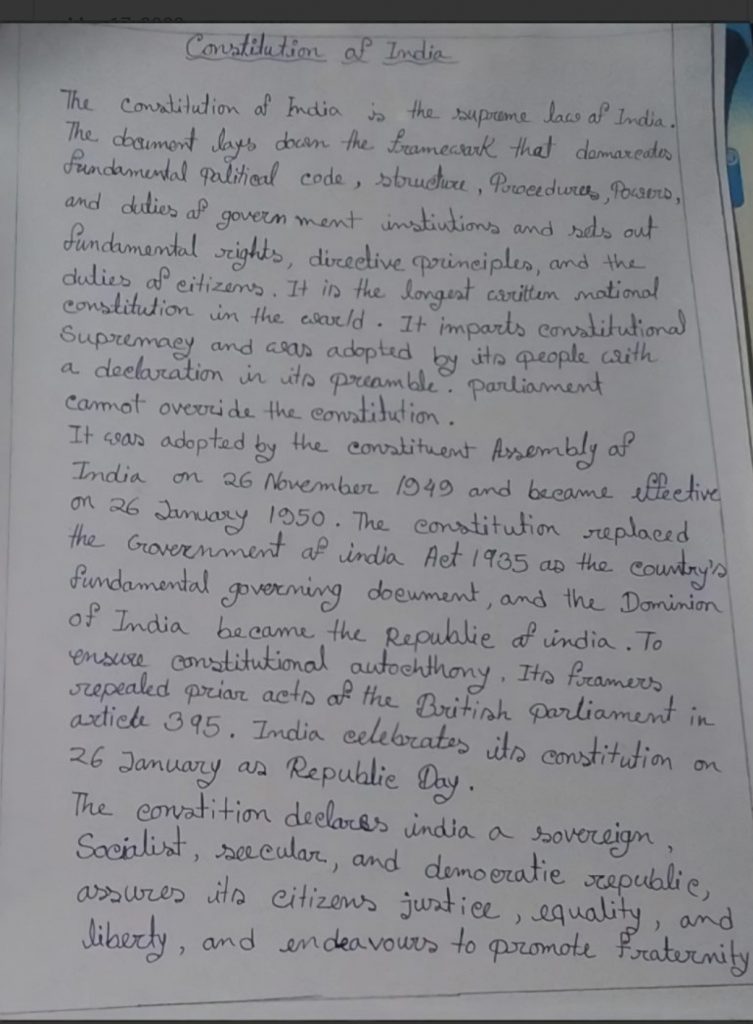 Constitution of India
The constitution of India is the supreme law of India.
The document lays down the framework that demarcates
fundamental political code, structure, Procedures, Powers,
and duties of government instiutions and sets out
fundamental rights, directive principles, and the
duties of citizens. It is the longest written national
constitution in the world. It imparts constitutional
Supremacy and was adopted by its people with
a declaration in its preamble. parliament
cannot override the constitution.
It was adopted by the constituent Assembly of
India on 26 November 1949 and became effective
on 26 January 1950. The constitution replaced
the Government of india Act 1935 as the country's
fundamental governing document, and the Dominion
of India became the Republic of india. To
ensure constitutional autochthony. Its framers
repealed prior acts of the British parliament in
article 395. India celebrates its constitution on
26 January as Republic Day.
The constition declares india a sovereign,
Socialist, seecular, and democratic republic,
assures its citizens justice, equality, and
liberty, and endeavours to promote fraternity